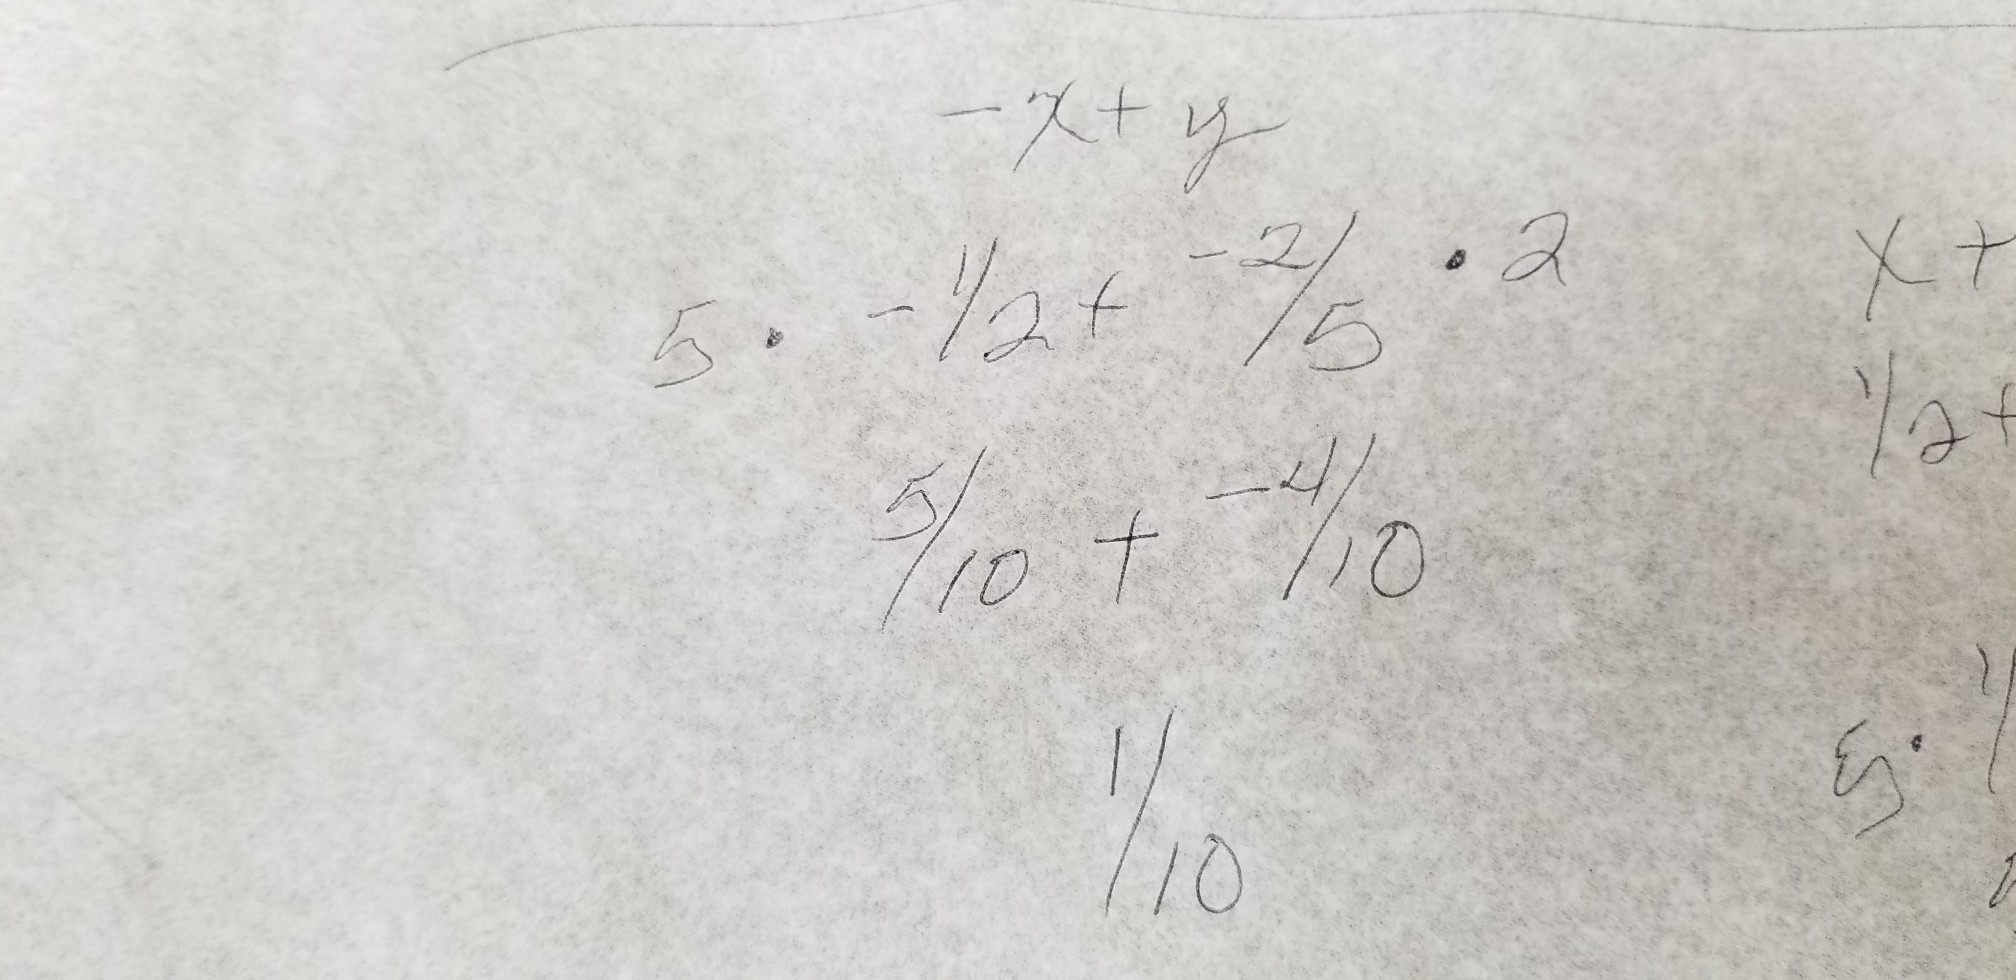 -x + y
5 · -1/2 + -2/5 · 2
5/10 + -4/10
1/10
x +
1/2 +
5 · 1/